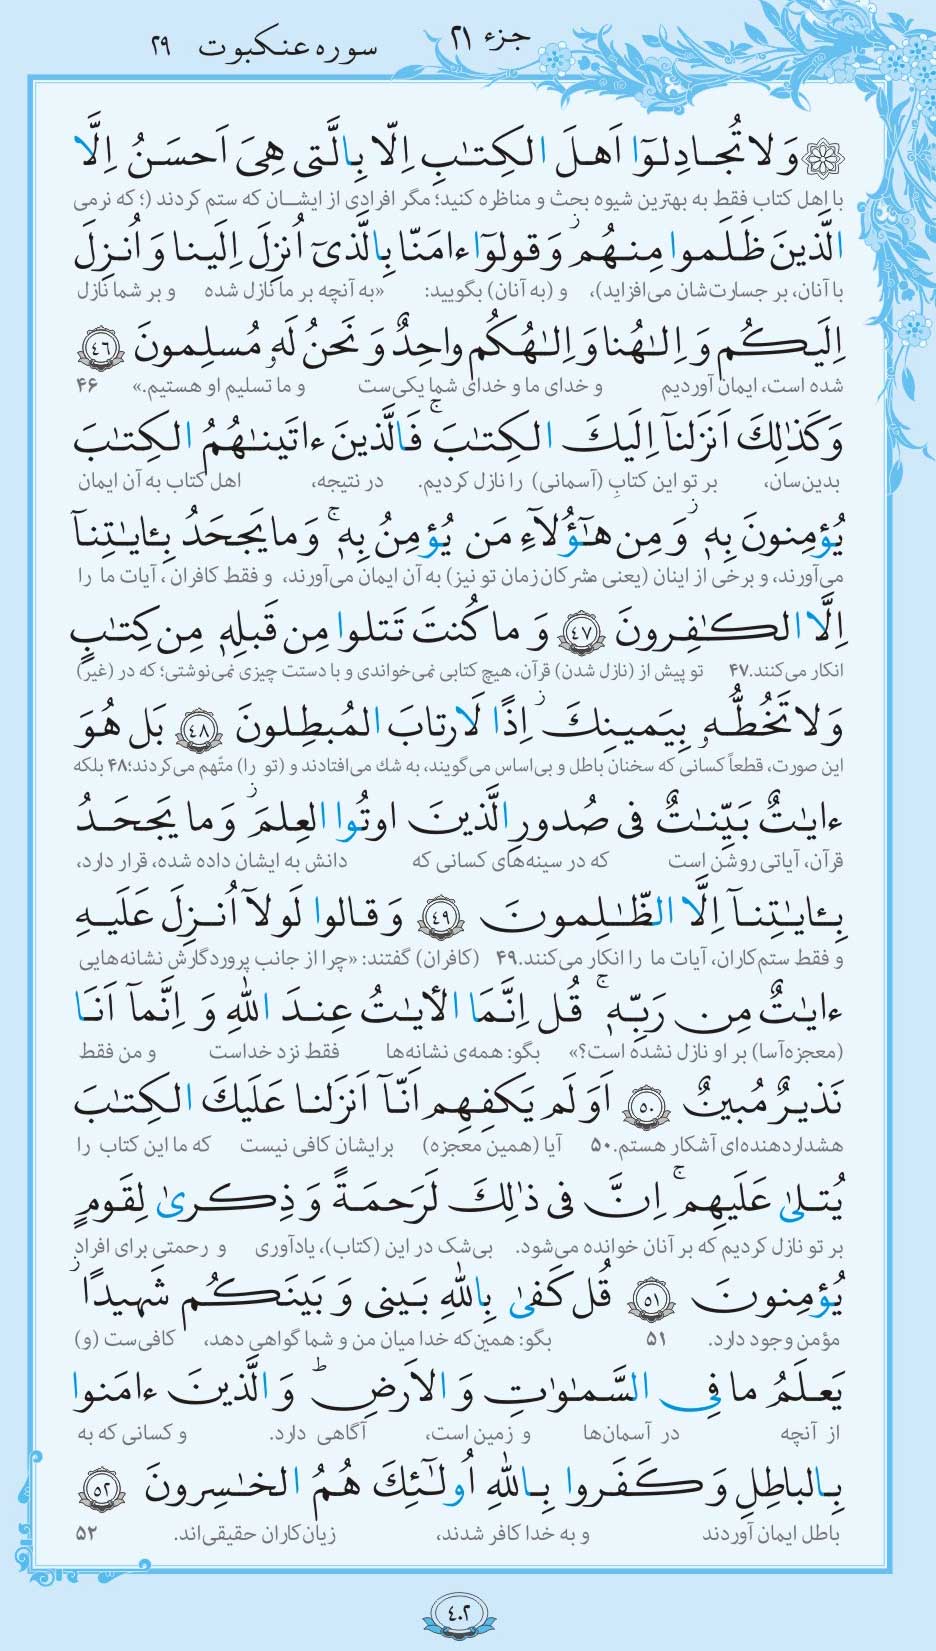 جزء ۲۱
سوره عنکبوت ۲۹
وَلا تُجـادِلوٓا اَهلَ الكِتـٰبِ اِلّا بِالَّتى هِىَ اَحسَنُ اِلَّا
با اهل کتاب فقط به بهترین شیوه بحث و مناظره کنید؛ مگر افرادی از ایشـان که ستم کردند (؛ که نرمی
الَّذينَ ظَلَموا مِنهُم ۖ وَقولوٓا ءامَنّا بِالَّذىٓ اُنزِلَ اِلَينا وَ اُنزِلَ
با آنان، بر جسارت‌شان می‌افزاید)، و (به آنان) بگویید: «به آنچه بر ما نازل شده و بر شما نازل
اِلَيكُم وَ اِلـٰهُنا وَ اِلـٰهُكُم واحِدٌ وَ نَحنُ لَهٗ مُسلِمونَ ﴿٤٦﴾
شده است، ایمان آوردیم و خدای ما و خدای شما یکی‌ست و ما تسلیم او هستیم.» ۴۶
وَ كَذٰلِكَ اَنزَلنآ اِلَيكَ الكِتـٰبَ ۚ فَالَّذينَ ءاتَينـٰهُمُ الكِتـٰبَ
بدین‌سان، بر تو این کتابِ (آسمانی) را نازل کردیم. در نتیجه، اهل کتاب به آن ایمان
يُؤمِنونَ بِهٖ ۖ وَ مِن هـٰٓؤُلآءِ مَن يُؤمِنُ بِهٖ ۚ وَ ما يَجحَدُ بِـٔايـٰتِنآ
می‌آورند، و برخی از اینان (یعنی مشرکان زمان تو نیز) به آن ایمان می‌آورند، و فقط کافران ، آیات ما را
اِلَّا الكـٰفِرونَ ﴿٤٧﴾ وَ ما كُنتَ تَتلوا مِن قَبلِهٖ مِن كِتـٰبٍ
انکار می‌کنند.۴۷ تو پیش از (نازل شدن) قرآن، هیچ کتابی نمی‌خواندی و با دستت چیزی نمی‌نوشتی؛ که در (غیر)
وَلا تَخُطُّهٗ بِيَمينِكَ ۖ اِذًا لَارتابَ المُبطِلونَ ﴿٤٨﴾ بَل هُوَ
این صورت، قطعاً کسانی که سخنان باطل و بی‌اساس می‌گویند، به شك می‌افتادند و (تو را) متّهم می‌کردند؛۴۸ بلکه
ءايـٰتٌ بَيِّنـٰتٌ فى صُدورِ الَّذينَ اوتُوا العِلمَ ۚ وَ ما يَجحَدُ
قرآن، آیاتی روشن است که در سینه‌های کسانی که دانش به ایشان داده شده، قرار دارد،
بِـٔايـٰتِنآ اِلَّا الظّـٰلِمونَ ﴿٤٩﴾ وَ قالوا لَولآ اُنزِلَ عَلَيهِ
و فقط ستم‌کاران، آیات ما را انکار می‌کنند.۴۹ (کافران) گفتند: «چرا از جانب پروردگارش نشانه‌هایی
ءايـٰتٌ مِن رَبِّهٖ ۚ قُل اِنَّمَا الأيـٰتُ عِندَ اللهِ وَ اِنَّمآ اَنَا
(معجزه‌آسا) بر او نازل نشده است؟» بگو: همه‌ی نشانه‌ها فقط نزد خداست و من فقط
نَذيرٌ مُبينٌ ﴿٥٠﴾ اَوَ لَم يَكفِهِم اَنّآ اَنزَلنا عَلَيكَ الكِتـٰبَ
هشداردهنده‌ای آشکار هستم.۵۰ آیا (همین معجزه) برایشان کافی نیست که ما این کتاب را
يُتلىٰ عَلَيهِم ۚ اِنَّ فى ذٰلِكَ لَرَحمَةً وَ ذِكرىٰ لِقَومٍ
بر تو نازل کردیم که بر آنان خوانده می‌شود. بی‌شک در این (کتاب)، یادآوری و رحمتی برای افراد
يُؤمِنونَ ﴿٥١﴾ قُل كَفىٰ بِاللهِ بَينى وَ بَينَكُم شَهيدًا ۖ
مؤمن وجود دارد. ۵۱ بگو: همین‌که خدا میان من و شما گواهی دهد، کافی‌ست (و)
يَعلَمُ ما فِى السَّمـٰوٰتِ وَ الاَرضِ ؕ وَ الَّذينَ ءامَنوا
از آنچه در آسمان‌ها و زمین است، آگاهی دارد. و کسانی که به
بِالباطِلِ وَ كَفَروا بِاللهِ اُولـٰٓئِكَ هُمُ الخـٰسِرونَ ﴿٥٢﴾
باطل ایمان آوردند و به خدا کافر شدند، زیان‌کاران حقیقی‌اند. ۵۲
٤٠٢